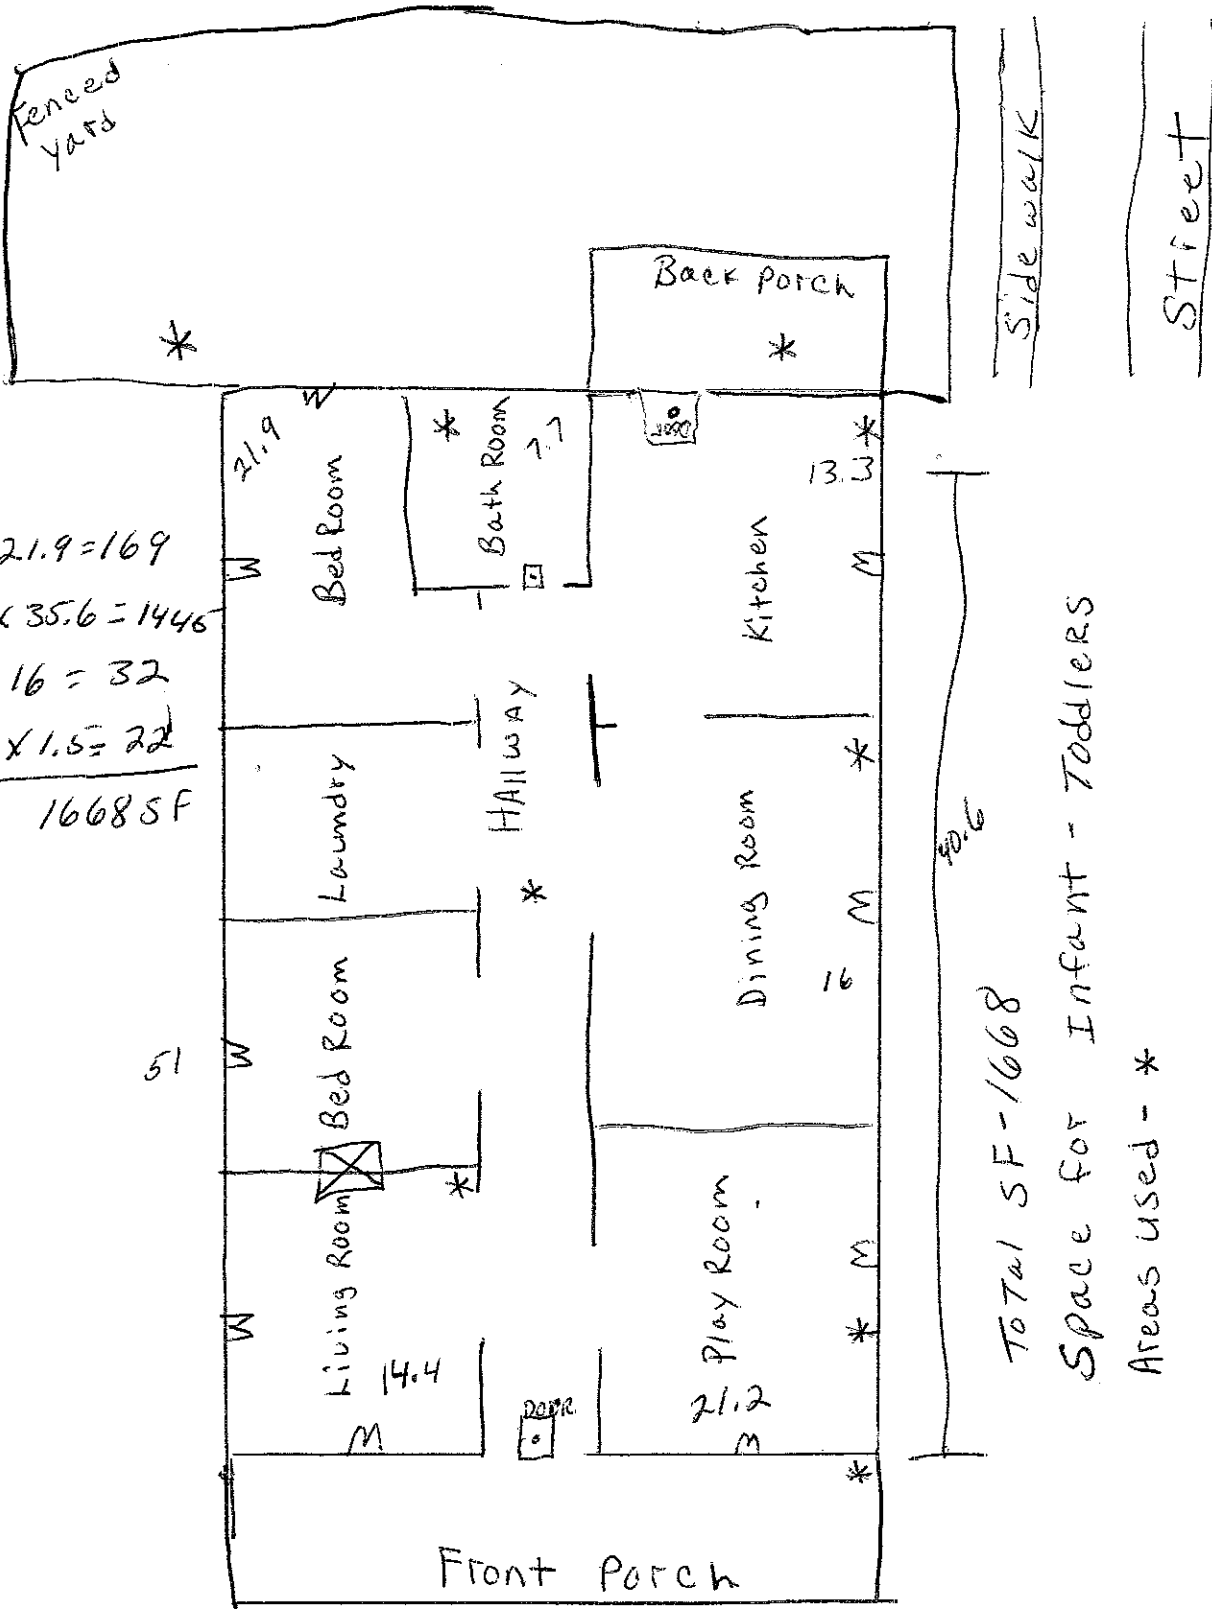 Fenced
yard
Sidewalk
Street
Back Porch
*
*
W
21.9
Bed Room
*
Bath Room
7.7
Door
*
13.3
Kitchen
W
W
21.9=169
x 35.6=1446
16 = 32
x 1.5= 22
1668 SF
Laundry
HAllway
*
*
Dining Room
16
W
40.6
51
W
Bed Room
*
Living Room
14.4
W
W
DOOR
Play Room
21.2
W
*
W
*
Front Porch
Total SF-1668
Space for Infant - Toddlers
Areas used- *